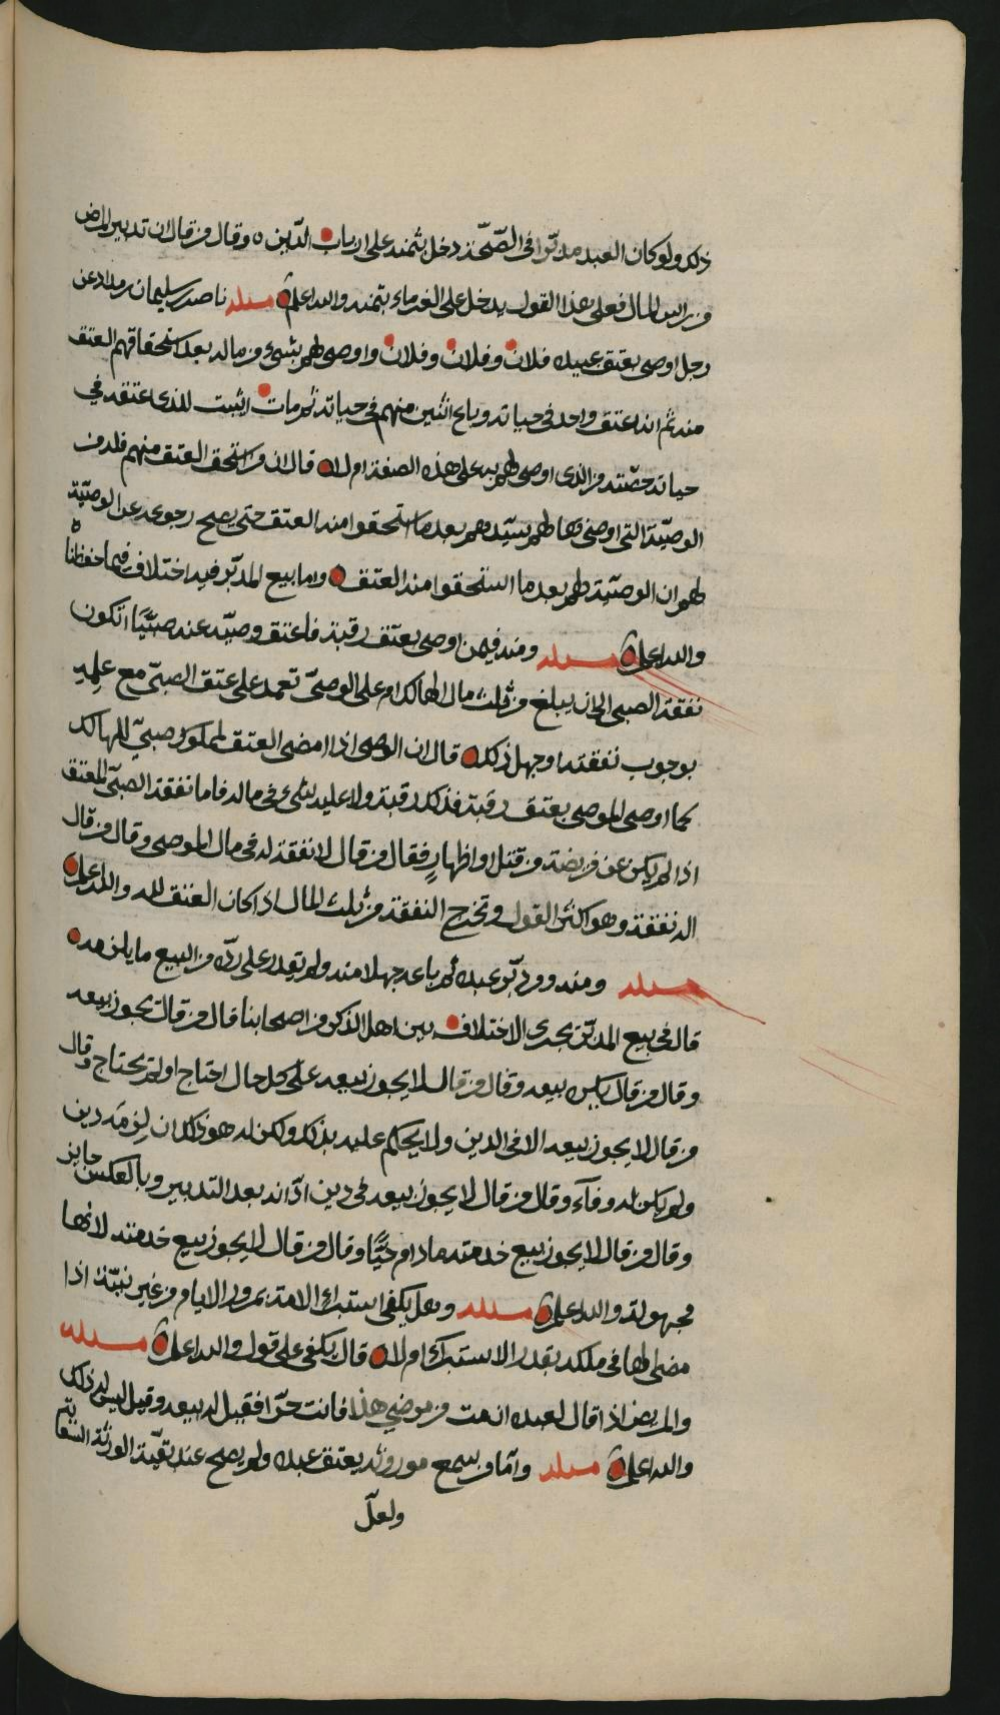 ذلك ولو كان العبد مدبّرا في الصّحّة دخل بثمنه على ارباب الدّين ه وقال من قال ان تدبير المرض
من راس المال فعلى هذا القول يدخل على الغرماء بثمنه والله اعلم مسئلة ناصر بن سليمان بن مداد عن
رجل اوصى بعتق عبيده فلان وفلان وفلان واوصى لهم بشيء من ماله بعد استحقاقهم العتق
منه ثم انه اعتق واحد في حياته وباع اثنين منهم في حياته ثم مات اثبت للذي اعتقه في
حياته حصّته من الذي اوصى لهم به على هذه الصفة ام لا قال ان من استحق العتق منهم فله من
الوصيّة التي اوصى بها لهم سيّدهم بعد ما استحقوا منه العتق حتى يصح رجوعه عن الوصيّة
لهم ان الوصيّة لهم بعد ما استحقوا منه العتق واما بيع المدبّر فيه اختلاف فيما حفظنا ه
والله اعلم مسئلة ومنه فيمن اوصى بعتق رقبة فاعتق وصيّه عنه صبيًّا اتكون
نفقة الصبي الى ان يبلغ من ثلث مال الهالك ام على الوصيّ تعمد على عتق الصبيّ مع علمه
بوجوب نفقته او جهل ذلك قال ان الوصي اذا امضى العتق لمملوك صبيّ للهالك
كما اوصى الموصي بعتق رقبة فذلك رقبة ولا عليه شيء في ماله فاما نفقة الصبيّ المعتق
اذا لم يكن عن فريضة من قتل او اظهار فقال من قال لا نفقة له في مال الموصي وقال من قال
له نفقة وهو اكثر القول وتخرج النفقة من ثلث المال اذا كان العتق لله والله اعلم
مسئلة ومنه ومن دبّر عبده ثم باعه جهلا منه ولم يقدر على ردّه من البيع ما يلزمه
قال في بيع المدبّر يجري الاختلاف بين اهل الذكر من اصحابنا قال من قال يجوز بيعه
وقال من قال يكره بيعه وقال من قال لا يجوز بيعه على كل حال احتاج او لم يحتاج وقال
من قال لا يجوز بيعه الا في الدين ولا يحكم عليه بذلك ولكن له هو ذلك ان لزمه دين
ولم يكن له وفاء وقال من قال لا يجوز بيعه في دين ادّانه بعد التدبير وبالعكس جايز
وقال من قال لا يجوز بيع خدمته ما دام حيًّا وقال من قال لا يجوز بيع خدمته لانها
مجهولة والله اعلم مسئلة وهل يكفي استبراء الامة بمرور الايام من غير نيّة اذا
مضى لها في ملكه بقدر الاستبراء ام لا قال يكفي على قول والله اعلم مسئلة
والمريض اذا قال لعبده ان مت من مرضي هذا فانت حرّ افقيل له بيعه وقيل ليس له ذلك
والله اعلم مسئلة وامّا من سمع موروثه يعتق عبده ولم يصح عند بقيّة الورثة
ولعلّ